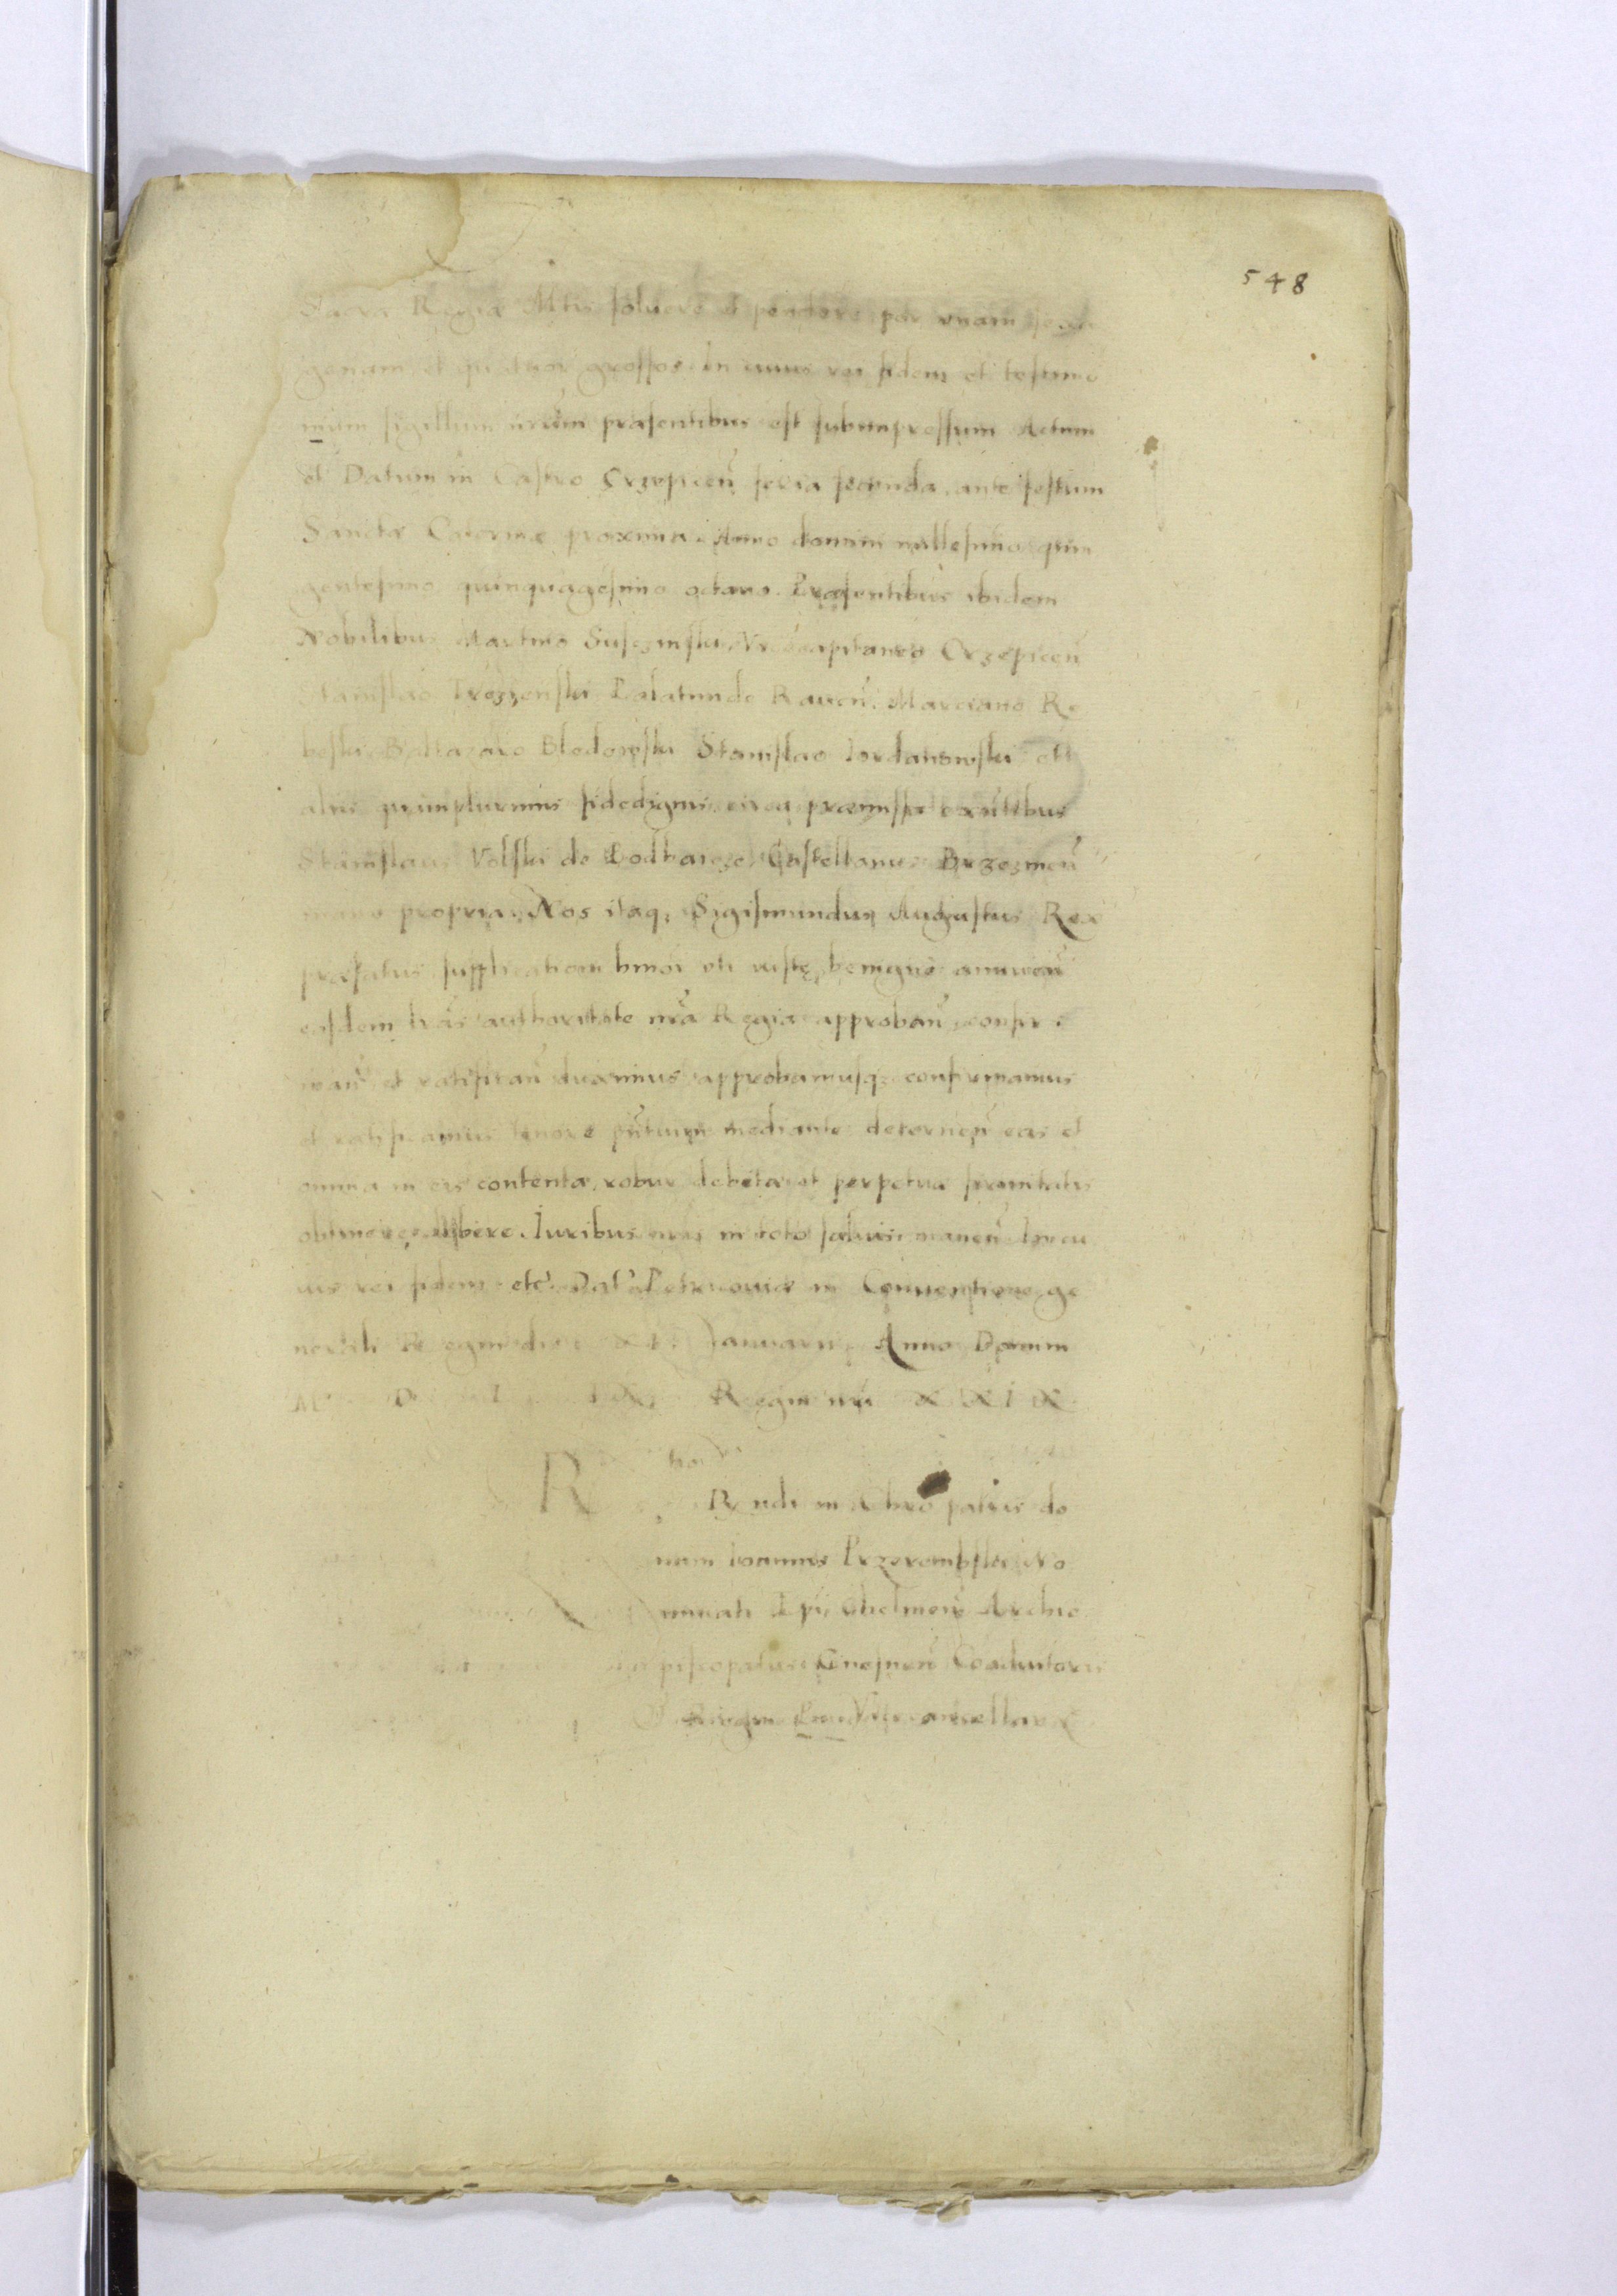 548
Sacra Regia Mtis soluere et pendere per unam sexa
genam et quatuor grossos in cuius rei fidem et testimo
nium sigillum nrum præsentibus est subimpressum Actum
et Datum in Castro Crzepicen feria secunda ante festum
Sanctæ Caterinæ proxima Anno domini millesimo quin
gentesimo quinquagesimo octavo. Præsentibus ibidem
Nobilibus Martino Vicecapitaneo Crzepicen
Stanislao Palatinide Raven. Marciano Re
beski Baltazaro Bledowski Stanislao Jordanowski ett
aliis quamplurimis fidedignis circa præmissa exntibus
Stanislaus Volski de Podhaicze Castellanus Brzezinen
manu propria. Nos itaq; Sigismundus Augustus Rex
præfatus supplicationi hmoi uti iustę benigne annuen
easdem lras authoritate nra Regia approban confir
man et ratifican duximus approbamusq; confirmamus
et ratificamus tenore pntium mediante decernen eas et
omnia in eis contenta robur debitæ et perpetuæ firmitatis
obtinere debere. Iuribus nris in toto salvis manen In cu
ius rei fidem etc. Dat Petricoviæ in Conventione ge
nerali Regni die Januarii Anno Domini
M D L IX Regni nri XXIX
R tio
Rndi in Chro patris do
mini Ioannis Przerembski No
minati Epi Chelmen Archie
piscopatus Gnesnen Coadiutoris
Regni Vicecancellarii